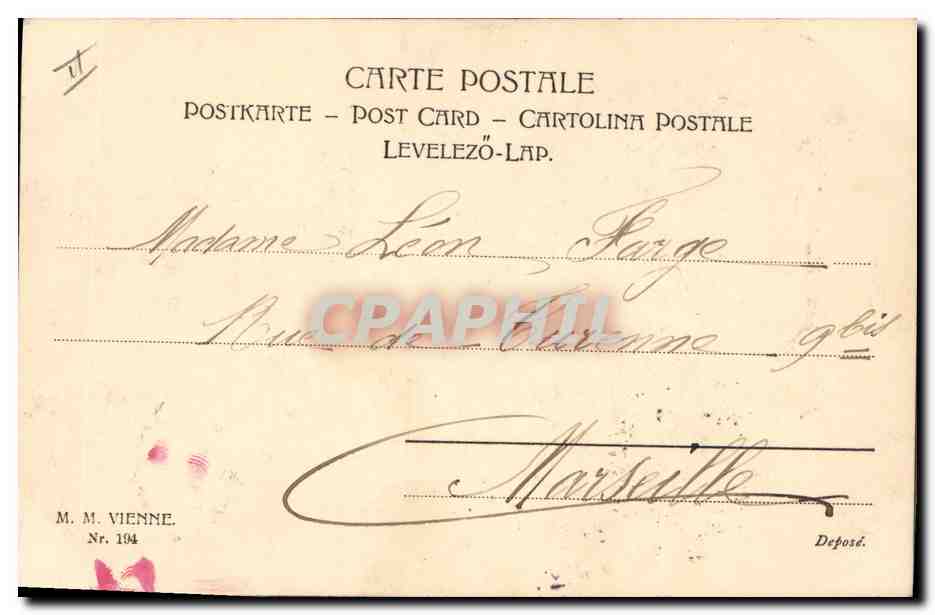 CARTE POSTALE
POSTKARTE – POST CARD – CARTOLINA POSTALE
LEVELEZŐ-LAP.
Madame Léon Farge
Rue de Turenne 9 bis
CPAPHIL
Marseille
M. M. VIENNE.
Nr. 194
Deposé.